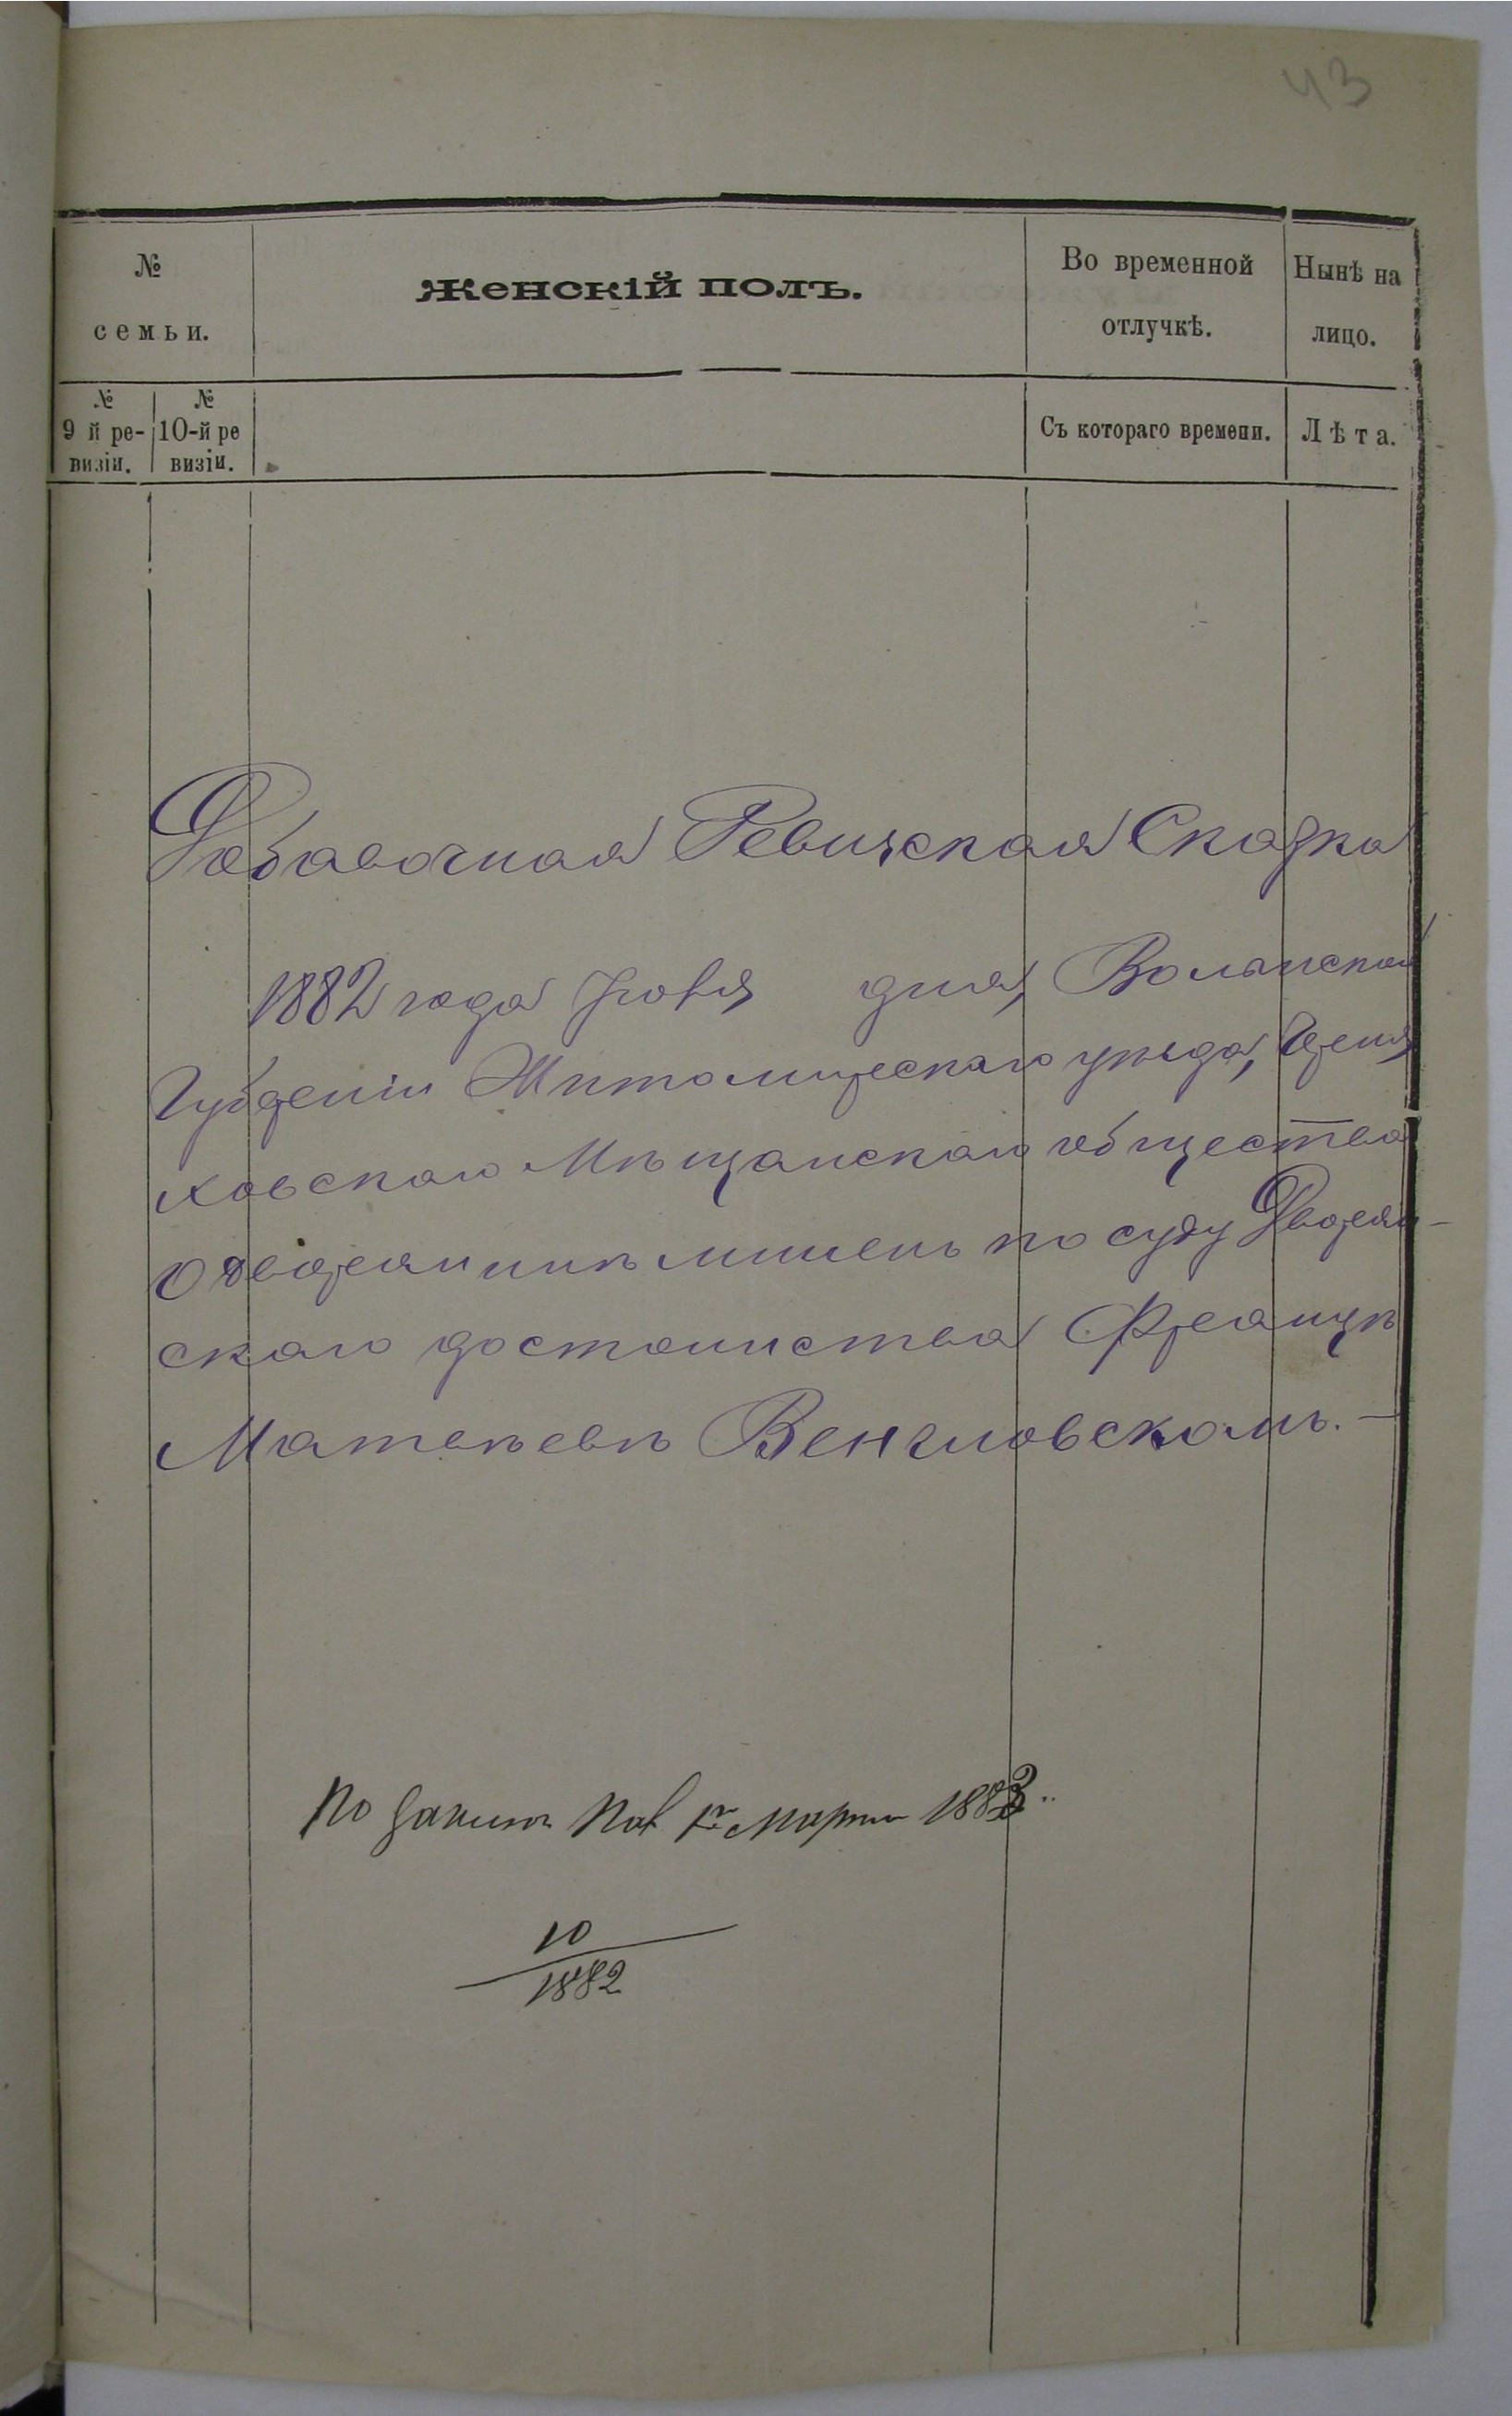 43
№
семьи.
Женскій полъ.
Во временной
отлучкѣ.
Нынѣ на
лицо.
№
9 й ре-
визіи.
№
10-й ре
визіи.
Съ котораго времени.
Лѣта.
Добавочная Ревизская Сказка
1882 года дня, Волынской
Губерніи Житомирскаго уѣзда,
ховскаго Мѣщанскаго общества
О дворянинѣ лишен по суду Дворян-
скаго достоинства Францѣ
Матвѣевѣ Венгловскомъ.-
По 1го Марта 1883
10
1882